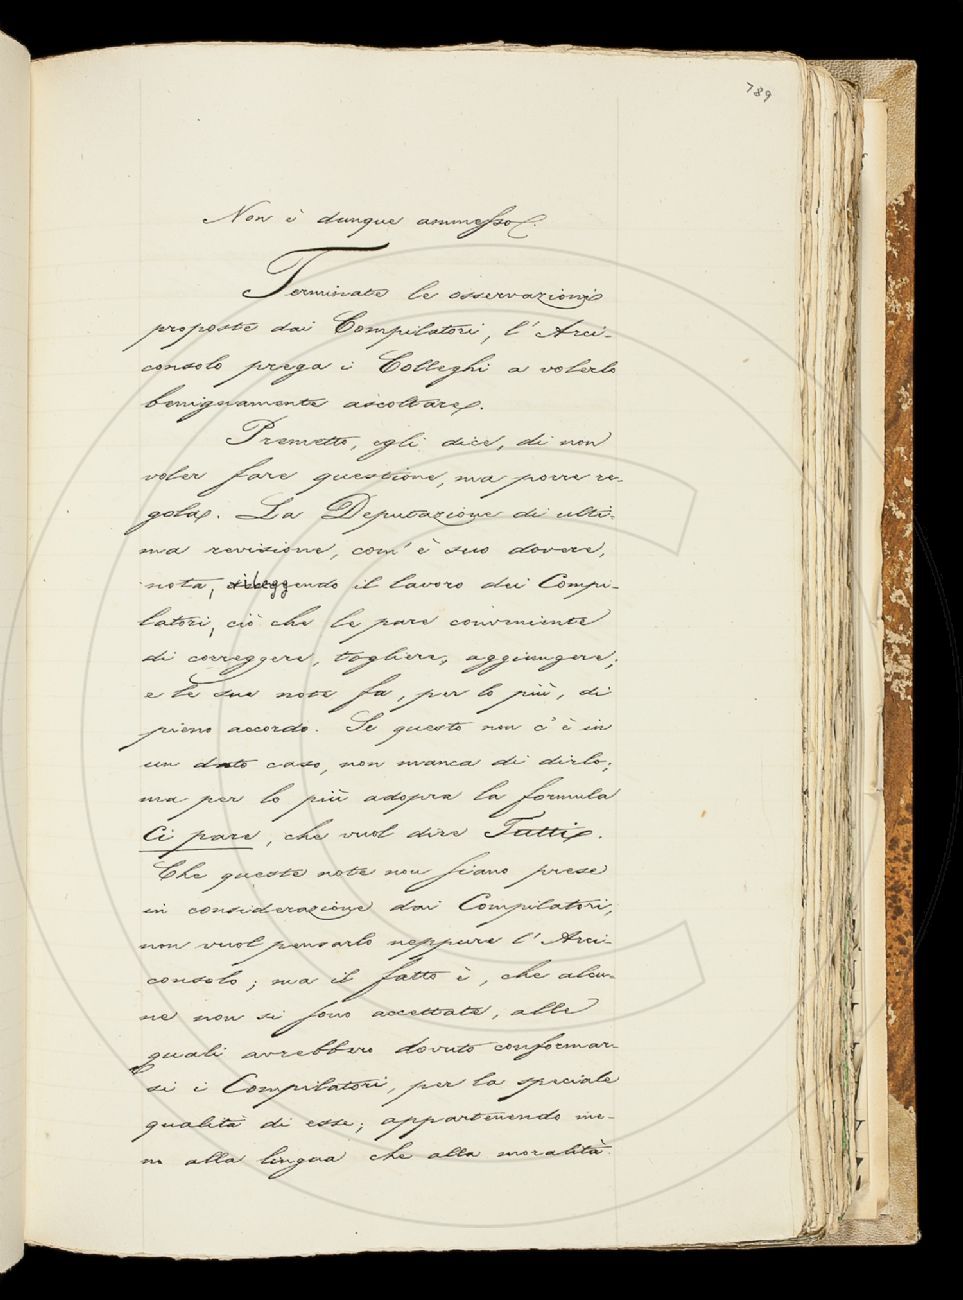 789
Non è dunque ammesso.
Terminate le osservazioni
proposte dai Compilatori, l' Arci-
consolo prega i Colleghi a volerlo
benignamente ascoltare.
Premetto, egli dice, di non
voler fare questione, ma porre re-
gola. La Deputazione di ulti-
ma revisione, com' è suo dovere,
nota, rileggendo il lavoro dei Compi-
latori, ciò che le pare conveniente
di correggere, togliere, aggiungere;
e le sue note fa, per lo più, di
pieno accordo. Se questo non c' è in
un dato caso, non manca di dirlo;
ma per lo più adopra la formula
Ci pare, che vuol dire Tutti.
Che queste note non siano prese
in considerazione dai Compilatori,
non vuol pensarlo neppure l' Arci-
consolo; ma il fatto è, che alcu-
ne non si sono accettate, alle
quali avrebbero dovuto conformar-
si i Compilatori, per la speciale
qualità di esse; appartenendo me-
no alla lingua che alla moralità.